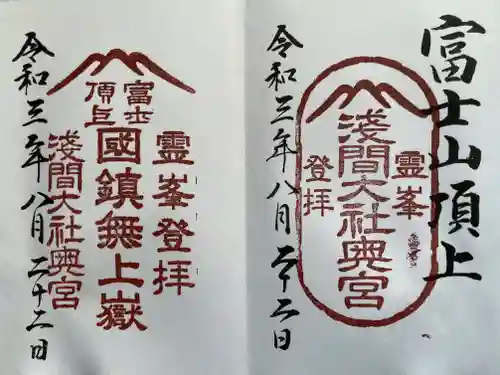 富士山頂上
霊峯
淺間大社奥宮
登拝
令和三年八月二十二日
霊峯登拝
富士
頂上
國鎮無上嶽
淺間大社奥宮
令和三年八月二十二日